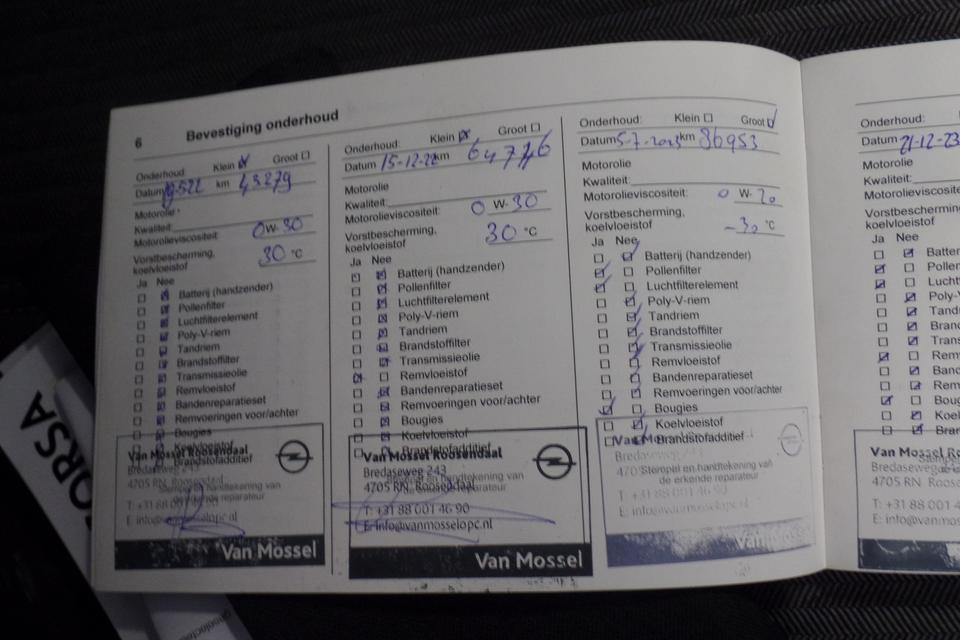 6
Bevestiging onderhoud
Onderhoud: Klein Groot
Datum km 43279
Motorolie
Kwaliteit:
Motorolieviscositeit: 0W-30
Vorstbescherming,
koelvloeistof 30 °C
Ja Nee
Batterij (handzender)
Pollenfilter
Luchtfilterelement
Poly-V-riem
Tandriem
Brandstoffilter
Transmissieolie
Remvloeistof
Bandenreparatieset
Remvoeringen voor/achter
Bougies
Koelvloeistof
Brandstofadditief
Van Mossel Roosendaal
Bredaseweg 243
4705 RN Roosendaal
Stempel en handtekening van
de erkende reparateur
T: +31 88 001 46 90
E: info@vanmosselopc.nl
Van Mossel
Onderhoud: Klein Groot
Datum 15-12-22 km 64746
Motorolie
Kwaliteit:
Motorolieviscositeit: 0 W-30
Vorstbescherming,
koelvloeistof 30 °C
Ja Nee
Batterij (handzender)
Pollenfilter
Luchtfilterelement
Poly-V-riem
Tandriem
Brandstoffilter
Transmissieolie
Remvloeistof
Bandenreparatieset
Remvoeringen voor/achter
Bougies
Koelvloeistof
Brandstofadditief
Van Mossel Roosendaal
Bredaseweg 243
Stempel en handtekening van
4705 RN Roosendaal
de erkende reparateur
T: +31 88 001 46 90
E: info@vanmosselopc.nl
Van Mossel
Onderhoud: Klein Groot
Datum 5-7-2023 km 86953
Motorolie
Kwaliteit:
Motorolieviscositeit: 0 W-20
Vorstbescherming,
koelvloeistof -30 °C
Ja Nee
Batterij (handzender)
Pollenfilter
Luchtfilterelement
Poly-V-riem
Tandriem
Brandstoffilter
Transmissieolie
Remvloeistof
Bandenreparatieset
Remvoeringen voor/achter
Bougies
Koelvloeistof
Brandstofadditief
Stempel en handtekening van
de erkende reparateur
T: +31 88 001 46 90
E: info@vanmosselopc.nl
Onderhoud:
Datum 21-12-23
Motorolie
Kwaliteit:
Motorolieviscosite
Vorstbescherming
koelvloeistof
Ja Nee
Batter
Pollen
Luch
Poly-
Tand
Bran
Trans
Rem
Band
Rem
Boug
Koel
Bran
Van Mossel Ro
Bredaseweg
4705 RN
T: +31 88
E: info@vanmos